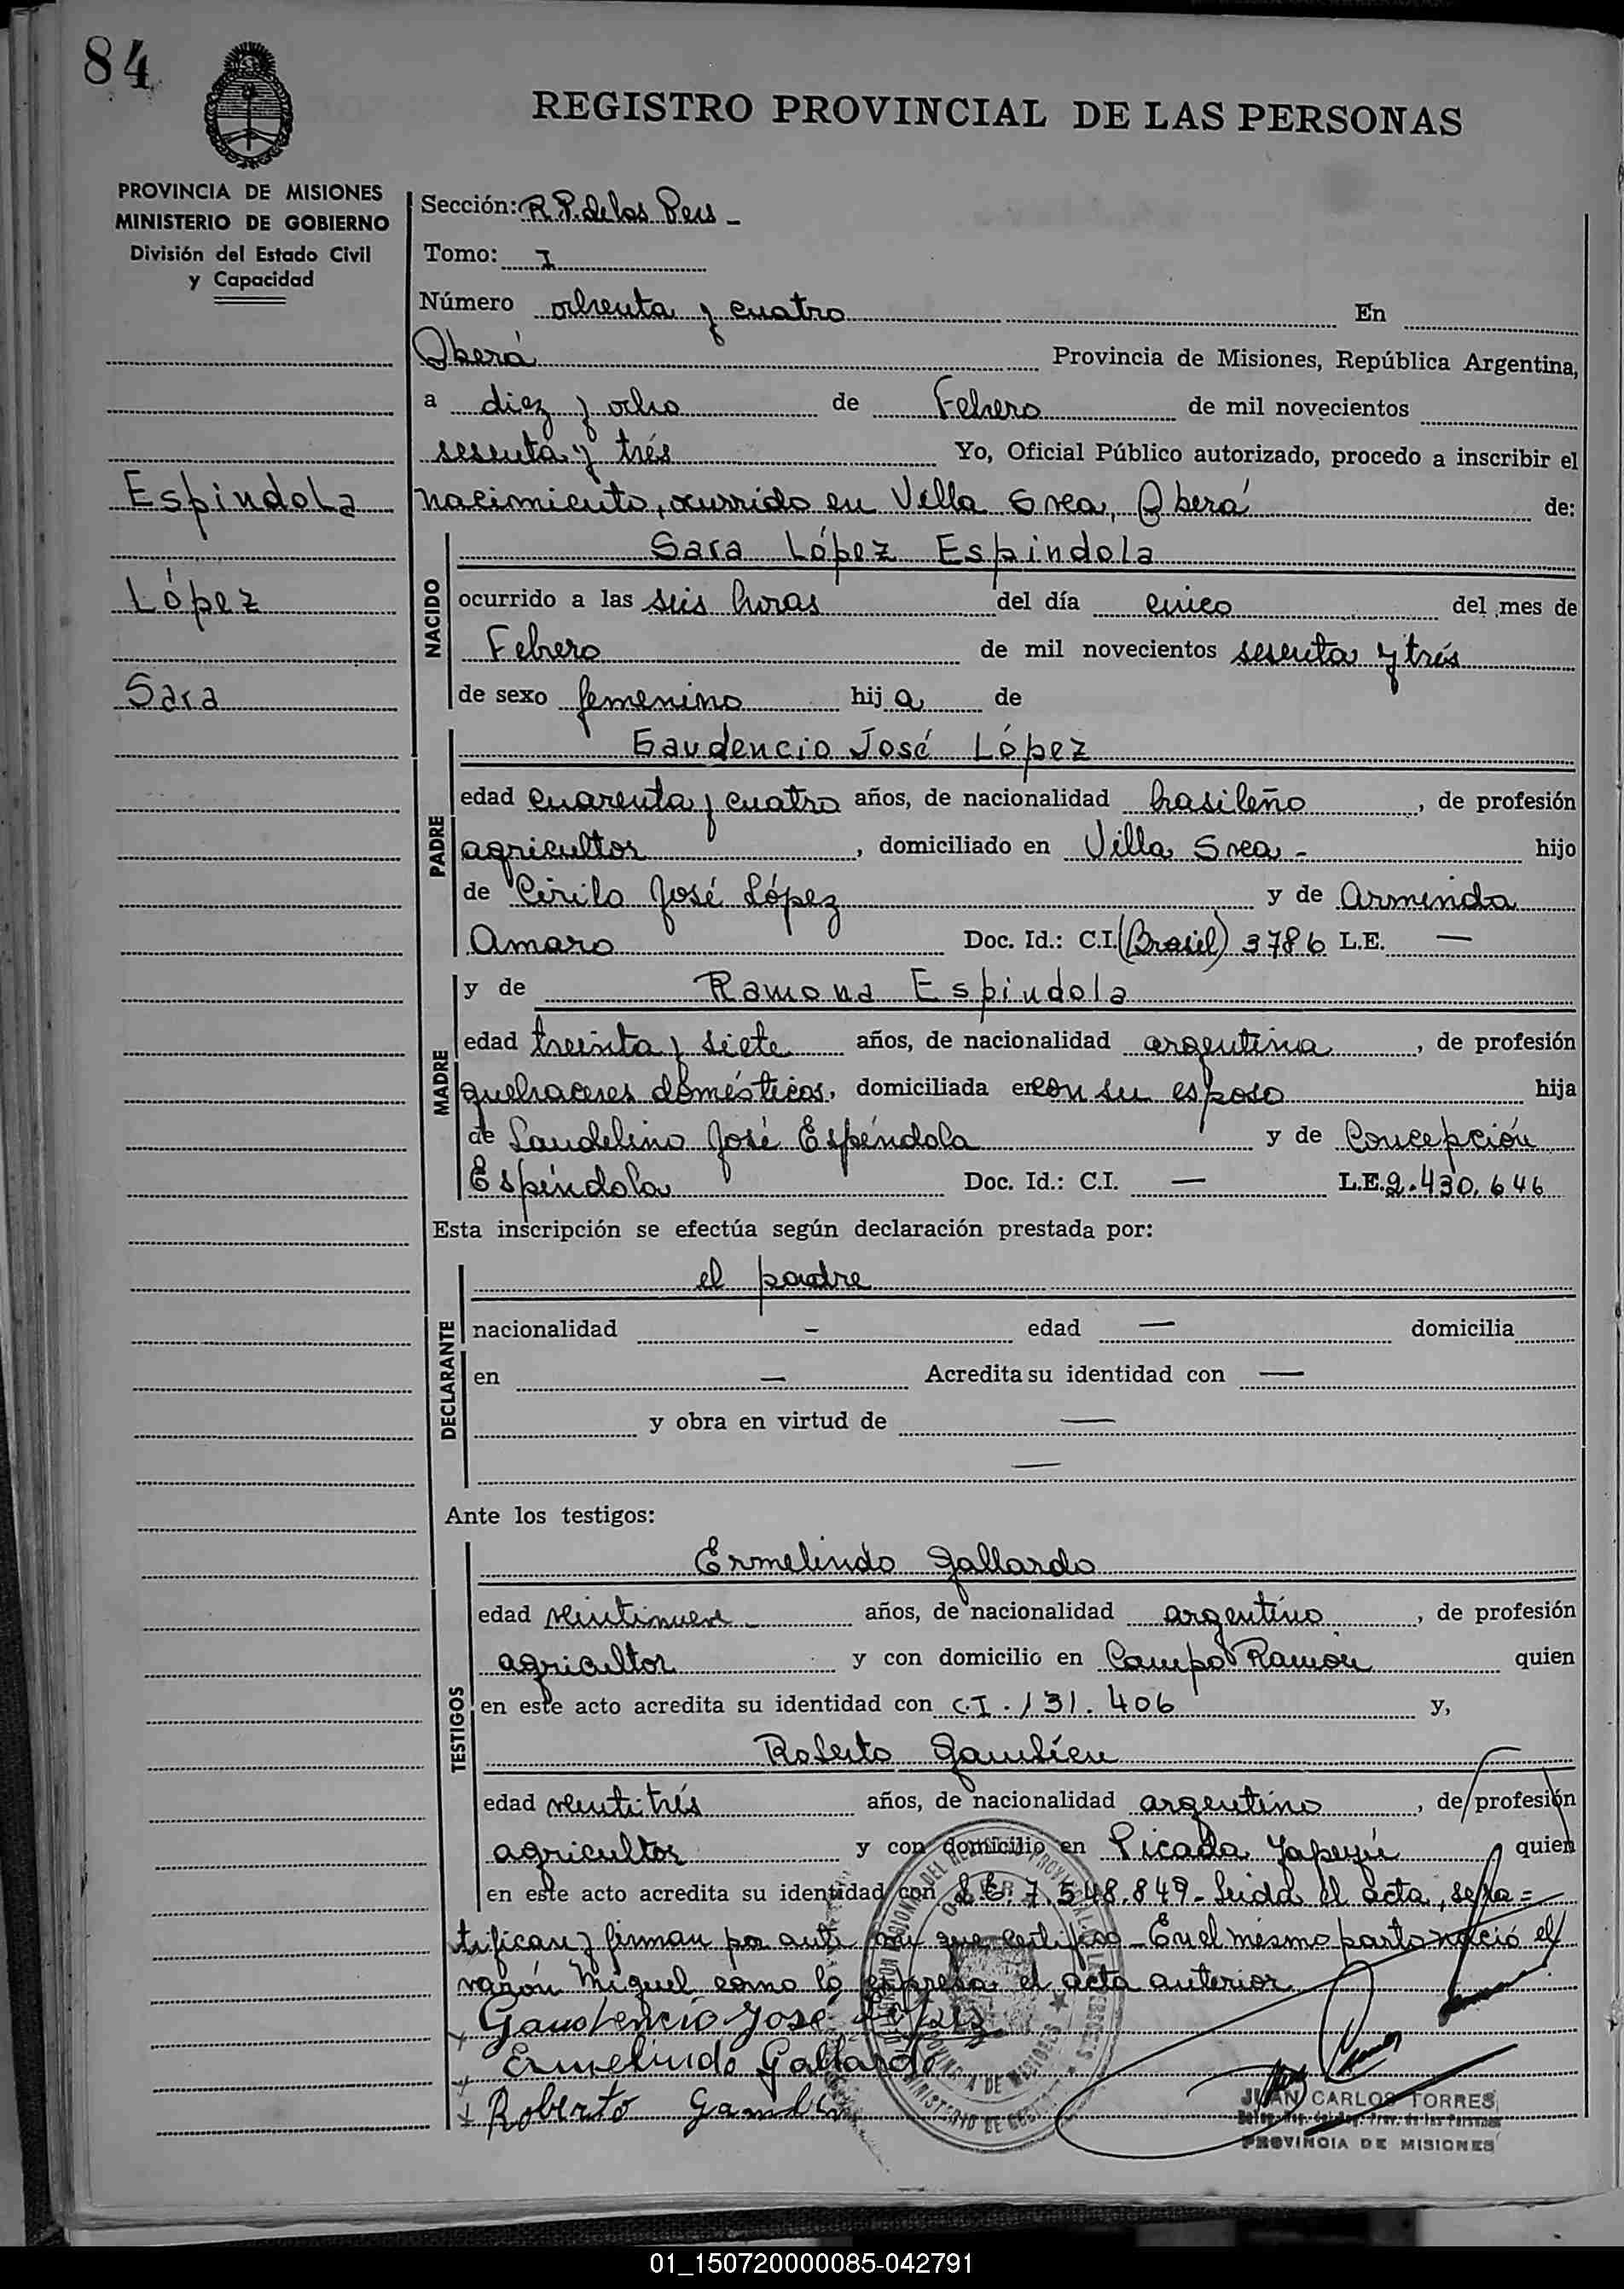 84
REGISTRO PROVINCIAL DE LAS PERSONAS
PROVINCIA DE MISIONES
MINISTERIO DE GOBIERNO
División del Estado Civil
y Capacidad
Sección: R.P. de las Pers -
Tomo: I
Número ochenta y cuatro En
Oberá Provincia de Misiones, República Argentina,
a diez y ocho de Febrero de mil novecientos
sesenta y trés Yo, Oficial Público autorizado, procedo a inscribir el
Espindola
nacimiento, ocurrido en Villa Svea, Oberá de:
López
Sara
NACIDO
Sara López Espindola
ocurrido a las seis horas del día cinco del mes de
Febrero de mil novecientos sesenta y trés
de sexo femenino hij a de
PADRE
Gaudencio José López
edad cuarenta y cuatro años, de nacionalidad brasileño, de profesión
agricultor, domiciliado en Villa Svea - hijo
de Cirilo José López y de Arminda
Amaro Doc. Id.: C.I. (Brasil) 3786 L.E. —
MADRE
y de Ramona Espindola
edad treinta y siete años, de nacionalidad argentina, de profesión
quehaceres domésticos, domiciliada en con su esposo hija
de Laudelino José Espíndola y de Concepción
Espíndola Doc. Id.: C.I. — L.E. 2.430.646
Esta inscripción se efectúa según declaración prestada por:
DECLARANTE
el padre
nacionalidad - edad — domicilia
en — Acredita su identidad con —
y obra en virtud de —
—
Ante los testigos:
TESTIGOS
Ermelindo Gallardo
edad veintinueve - años, de nacionalidad argentino, de profesión
agricultor y con domicilio en Campo Ramón quien
en este acto acredita su identidad con C.I. 131.406 y,
Roberto
edad veintitrés años, de nacionalidad argentino, de profesión
agricultor y con domicilio en Picada Yapeyú quien
en este acto acredita su identidad con L.E. 7.548.849 - Leida el acta, se ra=
tifican y firman por ante mi que certifico - En el mismo parto nació el
varón Miguel como lo expresa el acta anterior
Gaudencio José López
Ermelindo Gallardo
Roberto
JUAN CARLOS TORRES
PROVINCIA DE MISIONES
01_150720000085-042791